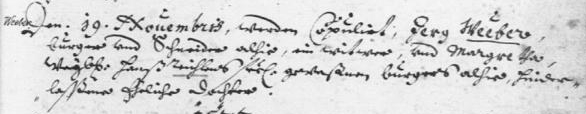 Weeber Den. 19. Nouembris, werden Copuliert, Jerg Weeber,
burger und Schneider alhie, ein witwer, und Margretha,
weylandt Hanß gewesnen burgers alhie, hinder-
laßne Eheliche Dochter.